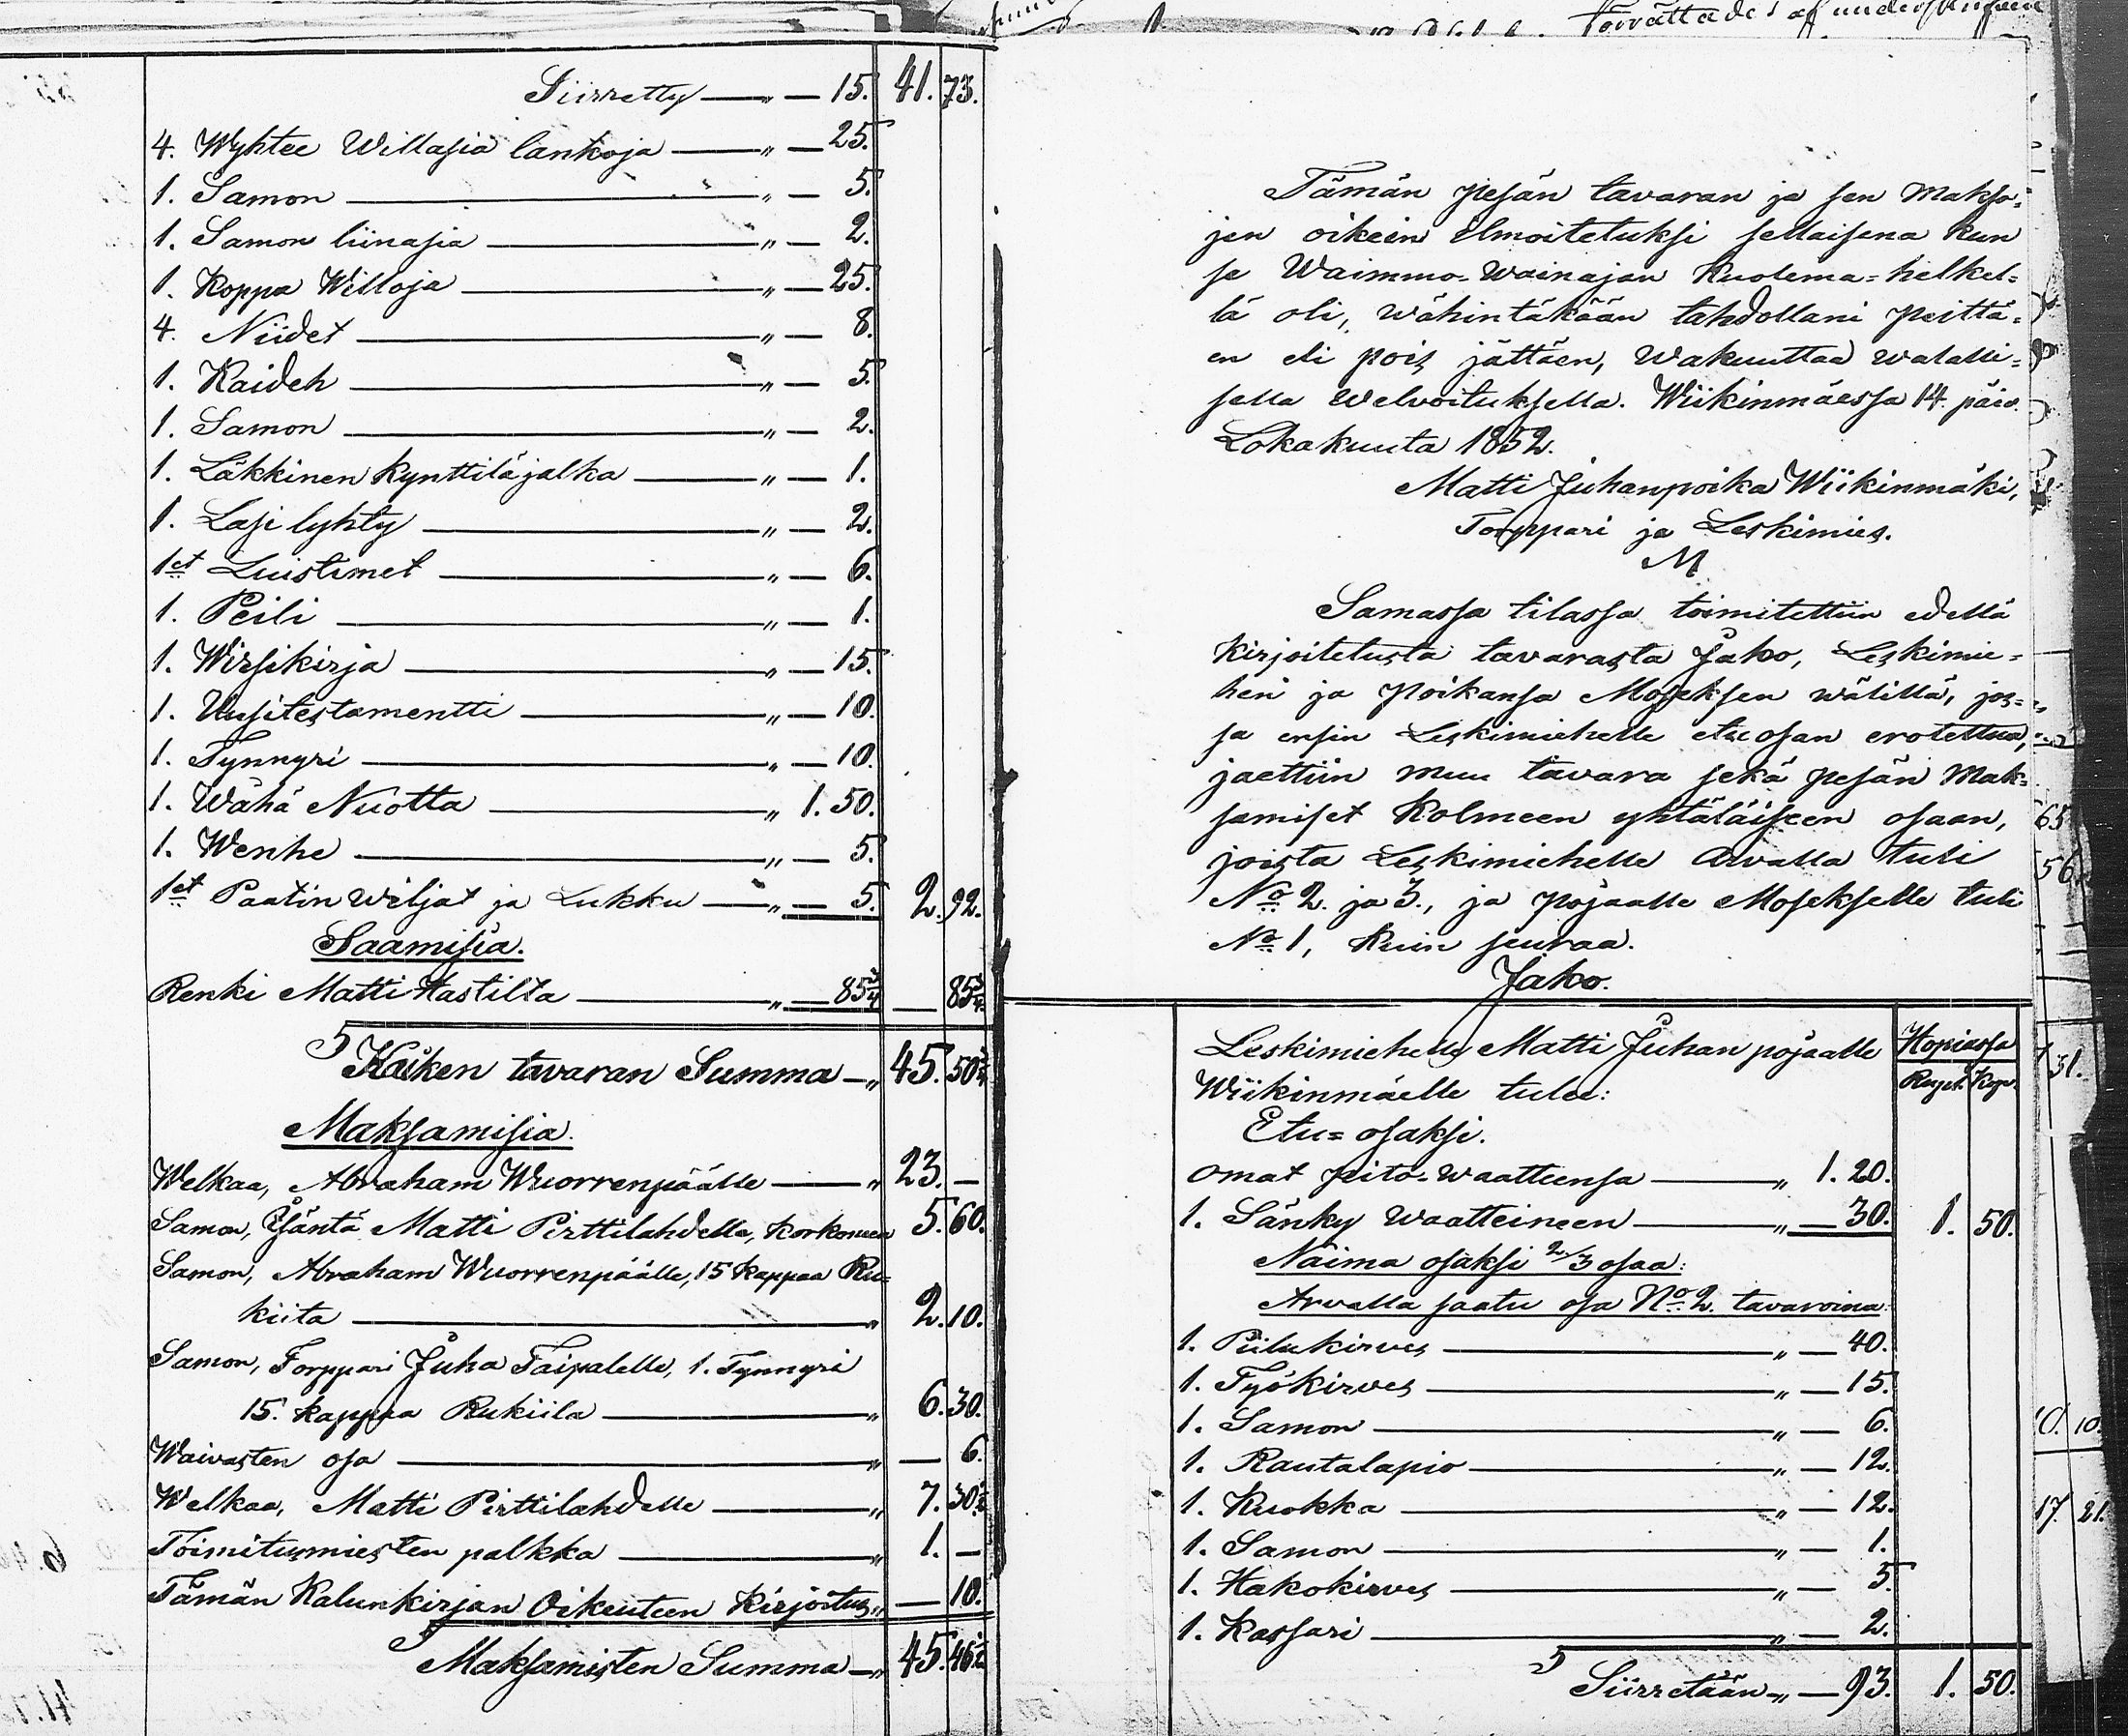 Siirretty — „ — 15. 41. 73.
4. Wyhtee Willasia lankoja — „ — 25.
1. Samon — „ — 5.
1. Samon liinasia — „ — 2.
1. Koppa Willoja — „ — 25.
4. Niidet — „ — 8.
1. Kaideh — „ — 5.
1. Samon — „ — 2.
1. Läkkinen Kynttiläjalka — „ — 1.
1. Lasi lyhty — „ — 2.
1et Luistimet — „ — 6.
1. Peili — „ — 1.
1. Wirsikirja — „ — 15.
1. Uusitestamentti — „ — 10.
1. Tynnyri — „ — 10.
1. Wähä Nuotta — „ 1. 50.
1. Wenhe — „ — 5.
1et Paatin wiljat ja Lukku — „ — 5. 2. 92.
Saamisia.
Renki Matti Hastilta — „ — 85 3/4 — 85 3/4
Kaiken tavaran Summa — „ 45. 50 3/4
Maksamisia.
Welkaa, Abraham Wuorrenpäälle — „ 23. —
Samon, Isäntä Matti Pirttilahdelle, korkoneen 5. 60.
Samon, Abraham Wuorrenpäälle, 15 kappaa Ru=
kiita — „ 2. 10.
Samon, Torppari Juha Taipalelle, 1. Tynnyri
15. kappaa Rukiila — „ 6. 30.
Waivasten osa — „ — 6.
Welkaa, Matti Pirttilahdelle — „ 7. 30 1/2
Toimitusmiesten palkka — „ 1. —
Tämän Kalunkirjan Oikeuteen Kirjoitus „ — 10.
Maksamisten Summa — „ 45. 46 1/2
Förrättades af undertecknade
Tämän pesän tavaran ja sen Makso=
jen oikein ilmoitetuksi sellaisena kun
se Waimmo-Wainajan Kuolema=helkel=
lä oli, wähintäkään tahdollani peittä=
en eli pois jättäen, Wakuuttaa walalli=
sella Welvoituksella. Wiikinmäessä 14. päiv.
Lokakuuta 1852.
Matti Juhanpoika Wiikinmäki,
Torppari ja Leskimies.
M
Samassa tilassa toimitettiin edellä
Kirjoitetusta tavarasta Jako, Leskimie=
hen ja poikansa Moseksen wälillä, jos=
sa ensin Leskimiehelle etuosan erotettua,
jaettiin muu tavara sekä pesän Mak=
samiset Kolmeen yhtäläiseen osaan,
joista Leskimiehelle Arvalla tuli
No 2. ja 3., ja pojaalle Mosekselle tuli
No 1, kuin seuraa.
Jako.
Leskimiehelle Matti Juhan pojaalle Hopiassa
Wiikinmäelle tulee: Rupl. Kop.
Etu=osaksi.
omat pito-waatteensa — „ 1. 20.
1. Sänky Waatteineen — „ — 30. 1. 50.
Naima osaksi 2/3 osaa:
Arvalla saatu osa No 2. tavaroina:
1. Piilukirves — „ — 40.
1. Työkirves — „ — 15.
1. Samon — „ — 6.
1. Rautalapio — „ — 12.
1. Kuokka — „ — 12.
1. Samon — „ — 1.
1. Hakokirves — „ — 5.
1. Kassari — „ — 2.
Siirretään — „ — 93. 1. 50.
65
56
31.
10. 10.
17. 21.